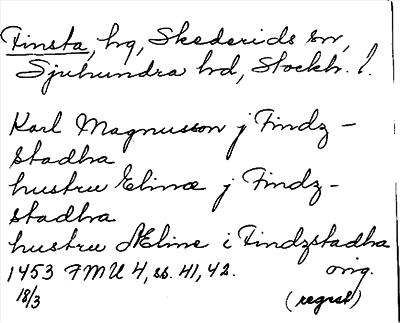 Finsta, hg, Skederids sn,
Sjuhundra hd, Stockh. l.
Karl Magnusson j Findz-
stadha
hustru Elinæ j Findz-
stadha
hustru Æline i Findzstadha
1453 FMU 4, ss. 41, 42. orig.
18/3 (regest)